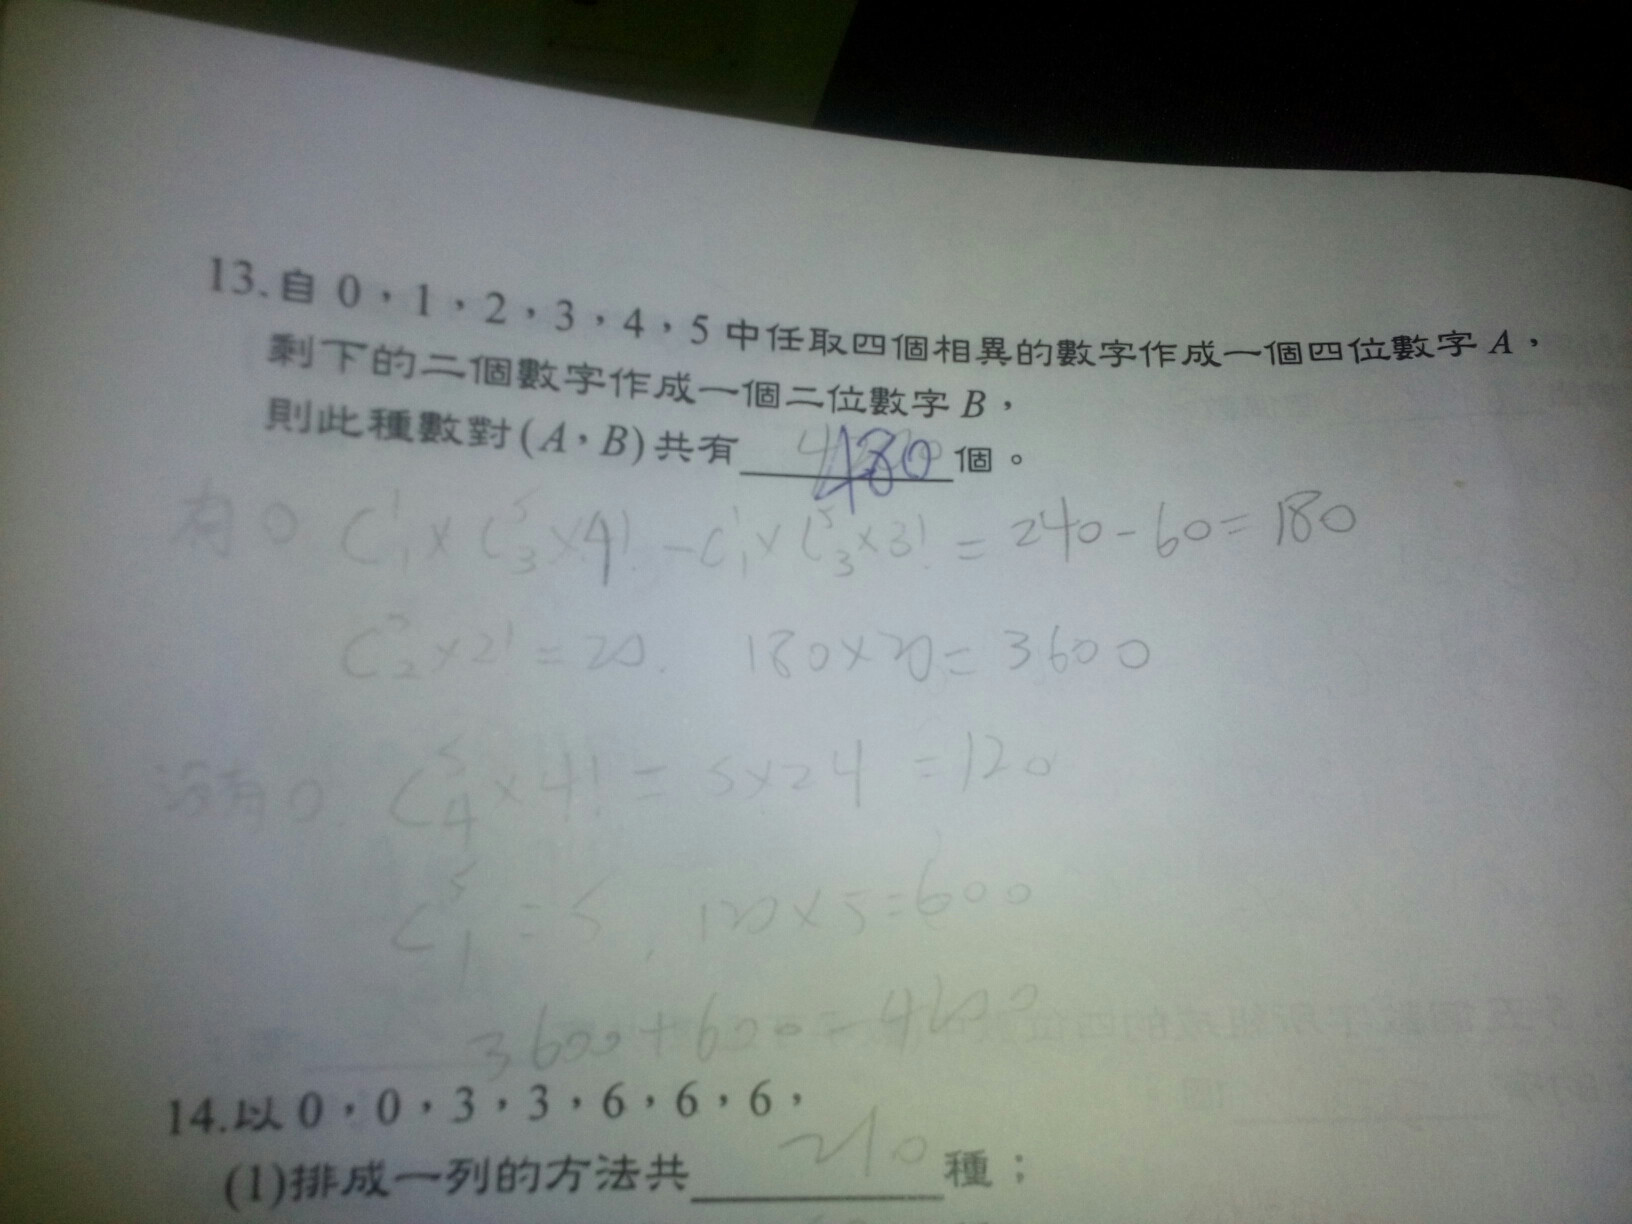 13.自 0，1，2，3，4，5 中任取四個相異的數字作成一個四位數字 A，
剩下的二個數字作成一個二位數字 B，
則此種數對(A，B)共有 480 個。
有0 C¹₁×C⁵₃×4!-C¹₁×C⁵₃×3! = 240-60=180
×2!=20. 180×20=3600
沒有0. C⁵₄×4! = 5×24 =120
C⁵₁ =5, 120×5=600
3600+600=4200
14.以 0，0，3，3，6，6，6，
(1)排成一列的方法共 210 種；